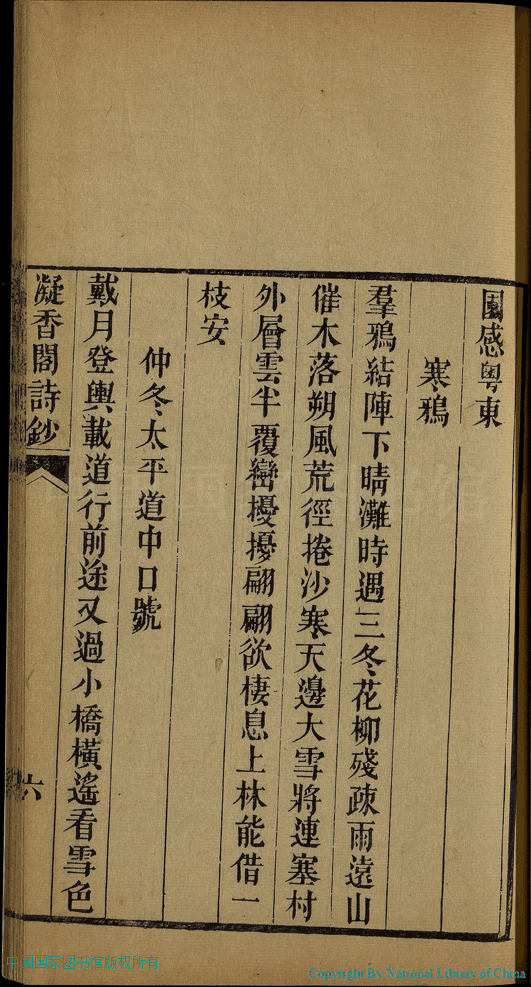 園感粤東
寒鴉
羣鴉結陣下晴灘時遇三冬花柳殘疎雨遠山
催木落朔風荒徑捲沙寒天邊大雪將連塞村
外層雲半覆巒擾擾翩翩欲棲息上林能借一
枝安
仲冬太平道中口號
戴月登輿載道行前途又過小橋橫遙看雪色
凝香閣詩鈔
六
中国国家图书馆版权所有
Copyright By National Library of China